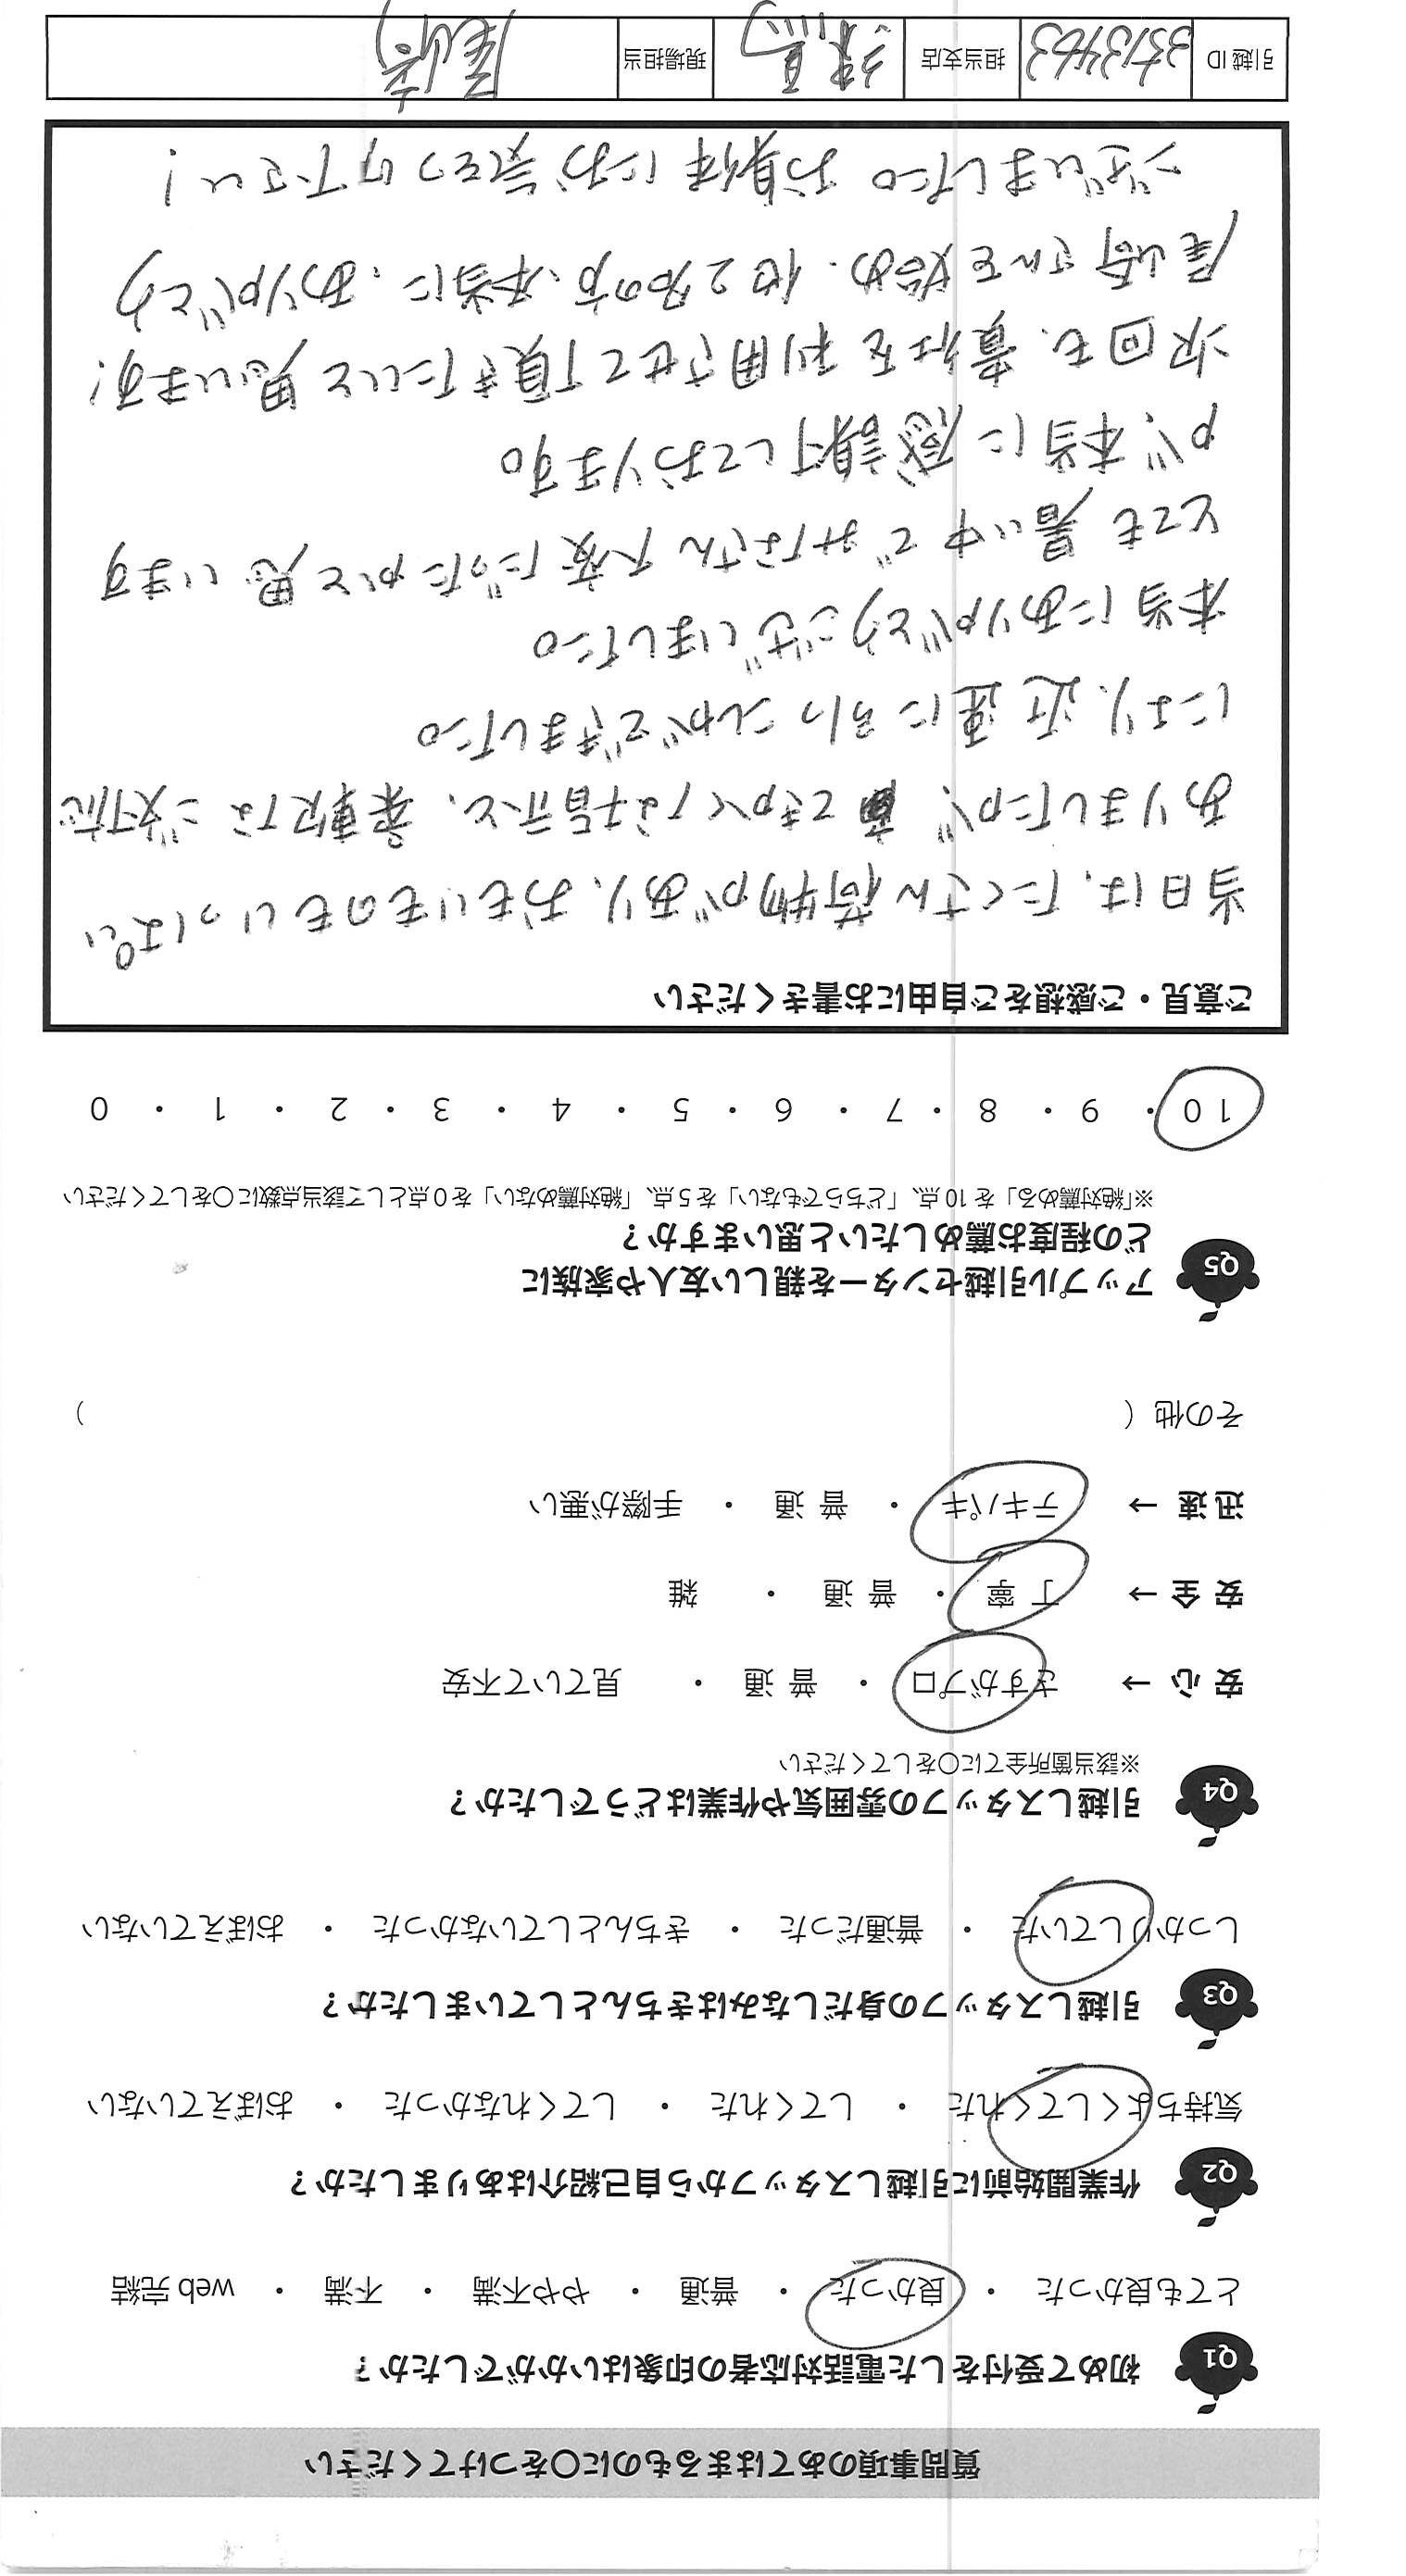 質問事項のあてはまるものに〇をつけてください
Q1 初めて受付をした電話対応者の印象はいかがでしたか？
とても良かった ・ 良かった ・ 普通 ・ やや不満 ・ 不満 ・ web 完結
Q2 作業開始前に引越しスタッフから自己紹介はありましたか？
気持ちよくしてくれた ・ してくれた ・ してくれなかった ・ おぼえていない
Q3 引越しスタッフの身だしなみはきちんとしていましたか？
しっかりしていた ・ 普通だった ・ きちんとしていなかった ・ おぼえていない
Q4 引越しスタッフの雰囲気や作業はどうでしたか？
※該当箇所全てに〇をしてください
安 心 → さすがプロ ・ 普 通 ・ 見ていて不安
安 全 → 丁 寧 ・ 普 通 ・ 雑
迅 速 → テキパキ ・ 普 通 ・ 手際が悪い
その他（ ）
Q5 アップル引越センターを親しい友人や家族に
どの程度お薦めしたいと思いますか？
※「絶対薦める」を 10 点、「どちらでもない」を 5 点、「絶対薦めない」を 0 点として該当点数に〇をしてください
10 ・ 9 ・ 8 ・ 7 ・ 6 ・ 5 ・ 4 ・ 3 ・ 2 ・ 1 ・ 0
ご意見・ご感想をご自由にお書きください
当日は、たくさん荷物があり、おもいものもいっぱい
ありましたが、てきかくな指示と、柔軟なご対応
により、迅速にうつことができました。
本当にありがとうございました。
とても暑い中でみなさん大変だったかと思います
が、本当に感謝しております。
次回も、貴社を利用させて頂きたいと思います！
尾崎さんを始め、他2名の方、本当に、ありがとう
ございました。お身体にお気をつけ下さい！
引越 ID 35713463 担当支店 練馬 現場担当 尾崎